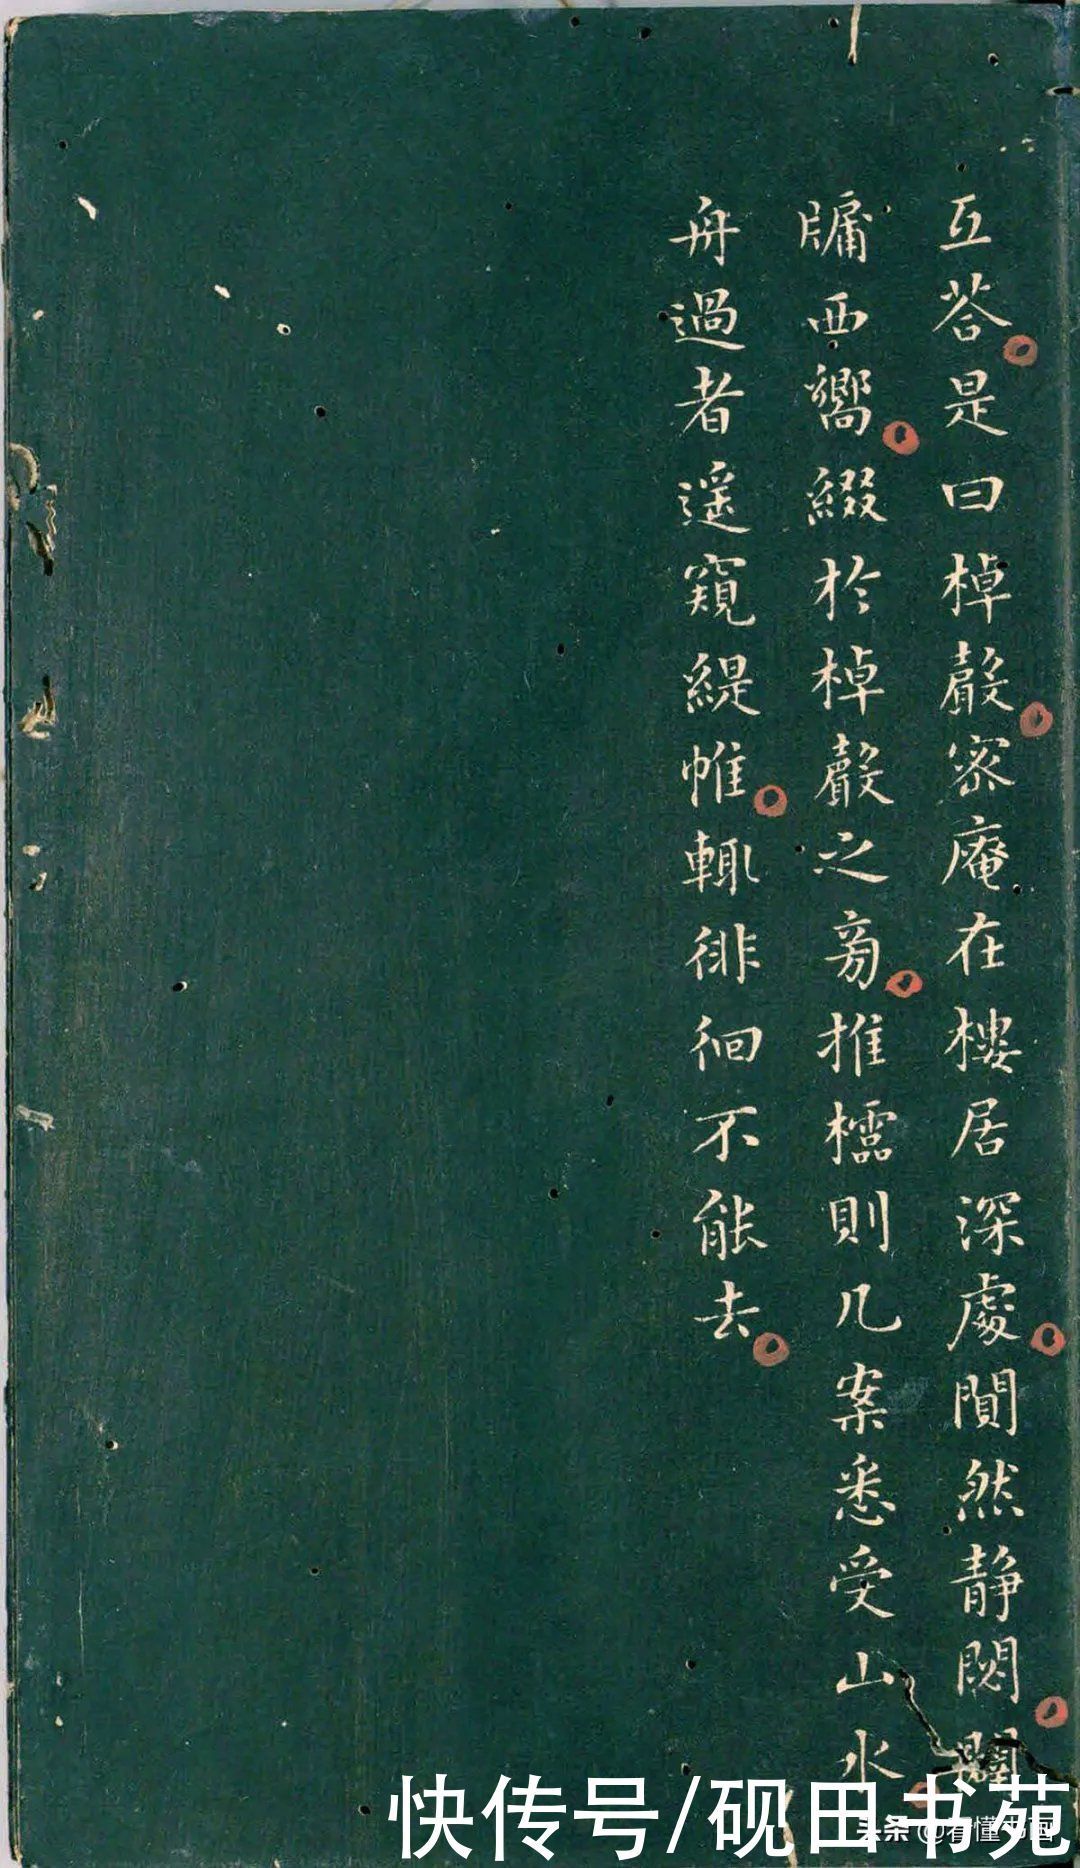 互荅是曰棹聲密庵在樓居深處閴然静閟闢
牖西嚮綴於棹聲之旁推櫺則几案悉受山水
舟過者遥窺緹帷輒徘徊不能去
快传号/砚田书苑
头条@看懂书画